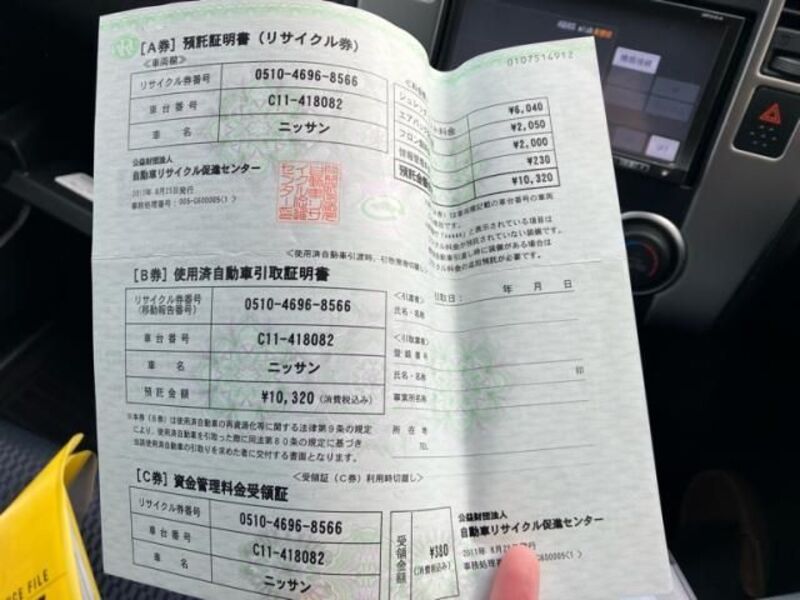 0107514912
[A券] 預託証明書 (リサイクル券)
<車両欄>
リサイクル券番号 0510-4696-8566
車台番号 C11-418082
車 名 ニッサン
公益財団法人
自動車リサイクル促進センター
¥6,040
エアバッグ 料金 ¥2,050
フロン ¥2,000
情報管理 ¥230
預託金 ¥10,320
と表示されている項目は
料金が預託されていない装備です。
引渡し時に装備がある場合は
料金の追加預託が必要です。
<使用済自動車引渡時、引取業者切離し>
[B券] 使用済自動車引取証明書
リサイクル券番号
(移動報告番号) 0510-4696-8566
車台番号 C11-418082
車 名 ニッサン
預託金額 ¥10,320 (消費税込み)
<引渡者> 引取日: 年 月 日
氏名・名称
<引取業者>
登録番号
氏名・名称 印
事業所名称
所在地
TEL
※本券(B券)は使用済自動車の再資源化等に関する法律第9条の規定
により、使用済自動車を引取った際に同法第80条の規定に基づき
当該使用済自動車の引取りを求めた者に交付する書面となります。
<受領証(C券)利用時切離し>
[C券] 資金管理料金受領証
リサイクル券番号 0510-4696-8566
車台番号 C11-418082
車 名 ニッサン
受領金額 ¥380
(消費税込み)
公益財団法人
自動車リサイクル促進センター
CE FILE